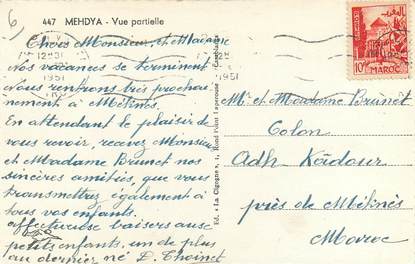 6
447 MEHDYA - Vue partielle
Chers Monsieur, et Madame
Nos vacances se terminent
Nous rentrons très prochai-
nement à Méknès.
En attendant le plaisir de
vous revoir, recevez Monsieur
et Madame Brunet nos
sincères amitiés, que vous
transmettrez également à
tous vos enfants.
affectueuse baisers aux
petits enfants, un de plus
au dernier né D. Thoinet
Ed. « La Cigogne », 1, Rond Point Lapérouse
1951
1951
10F
MAROC
Mr et Madame Brunet
Colon
Adh-Kâdour
près de Méknès
Maroc